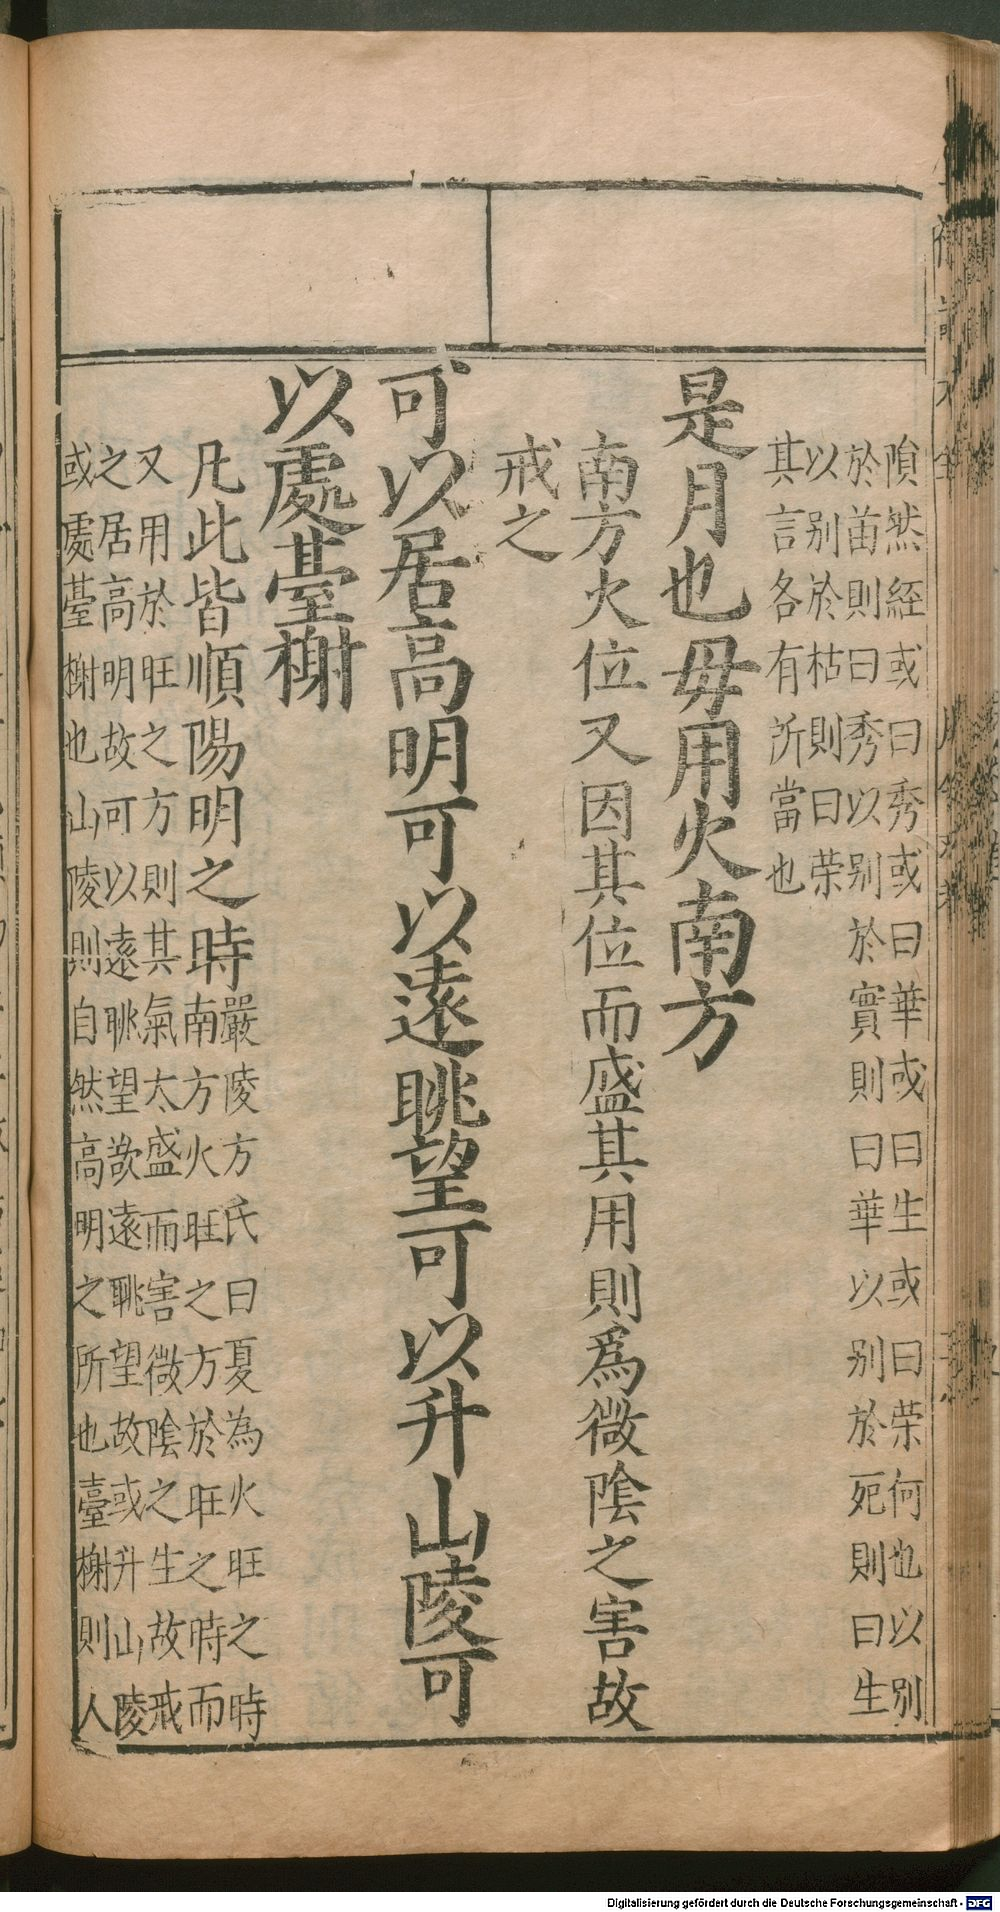 隕然經或曰秀或曰華或曰生或曰荣何也以别
於苖則曰秀以别於實則曰華以别於死則曰生
以别於枯則曰荣
其言各有所當也
是月也毋用火南方
南方火位又因其位而盛其用則爲微陰之害故
戒之
可以居高明可以遠眺望可以升山陵可
以處臺榭
凡此皆順陽明之時
嚴陵方氏曰夏為火旺之時
南方火旺之方於旺之時而
又用於旺之方則其氣太盛而害微陰之生故戒
之居高明故可以遠眺望欲遠眺望故或升山陵
或處臺榭也山陵則自然高明之所也臺榭則人
Digitalisierung gefördert durch die Deutsche Forschungsgemeinschaft - DFG